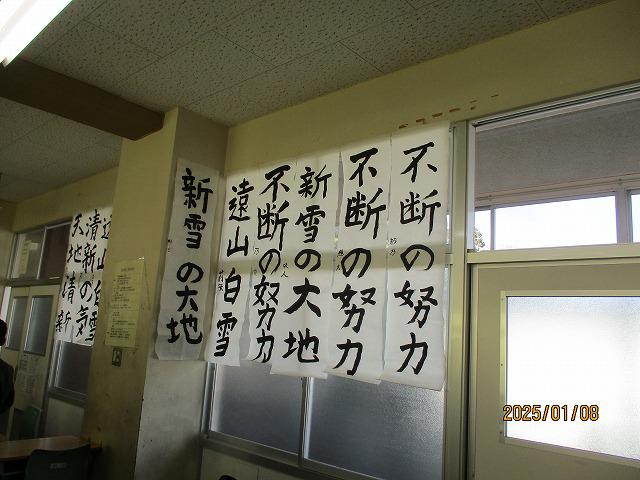 不断の努力
不断の努力
新雪の大地
不断の努力
遠山白雪
新雪の大地
遠山白雪
清新の気
天地清新
2025/01/08